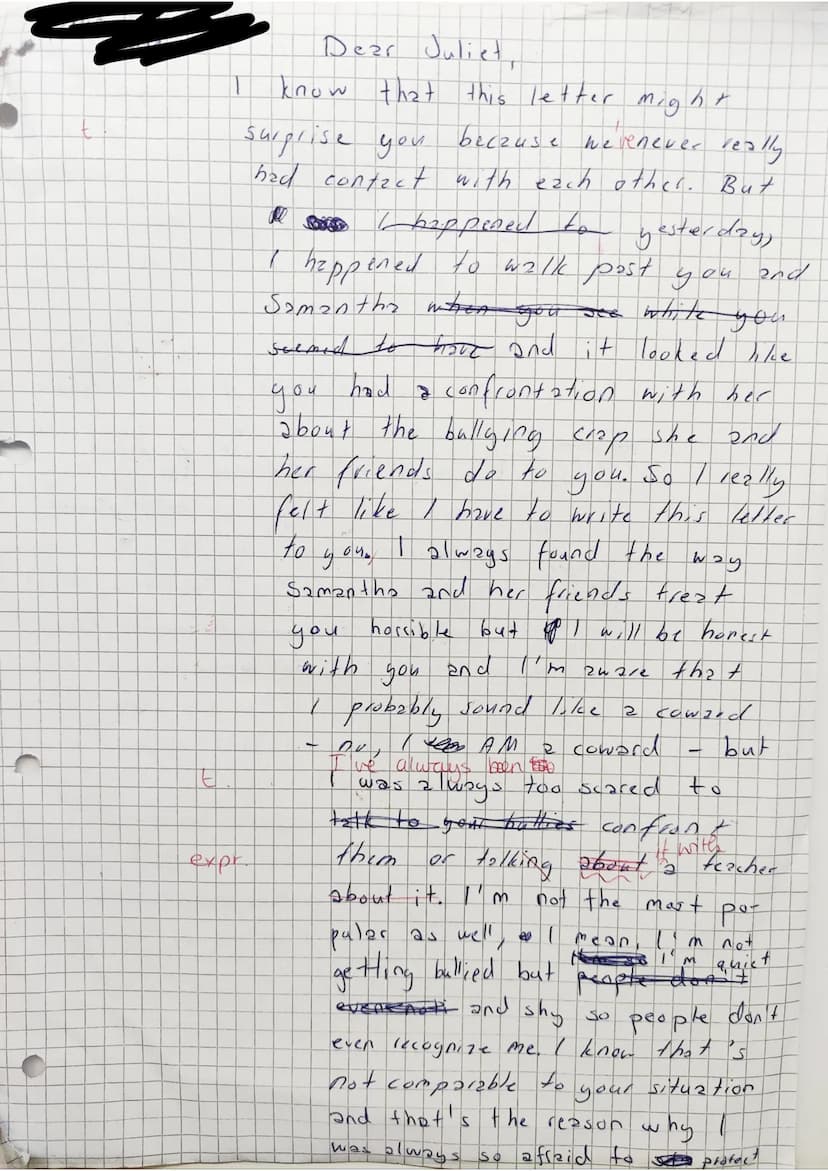 Dear Juliet,
I know that this letter might
t. surprise you because we've never really
had contact with each other. But
I happened to yesterday,
I happened to walk past you and
Samantha when you see while you
seemed to have and it looked like
you had a confrontation with her
about the bullying crap she and
her friends do to you. So I really
felt like I have to write this letter
to you. I always found the way
Samantha and her friends treat
you horrible but I will be honest
with you and I'm aware that
I probably sound like a coward
- no, I AM a coward - but
I've always been too
t. I was always too scared to
talk to your bullies confront
it with
expr. them or talking about a teacher
about it. I'm not the most po-
pular as well, I mean, I'm not
I'm quiet
getting bullied but people don't
and shy so people don't
even recognize me. I know that's
not comparable to your situation
and that's the reason why I
was always so afraid to protect